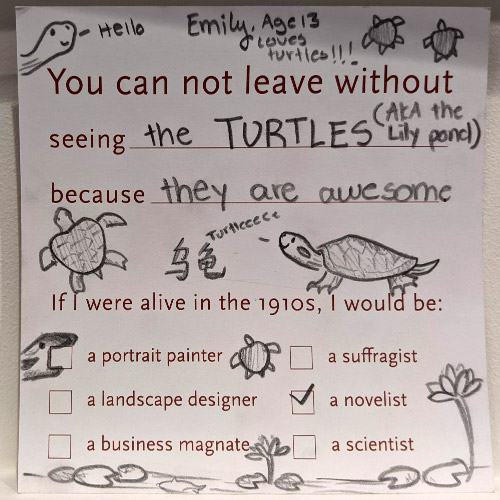 Hello
Emily, Age 13
Loves
turtles!!!
You can not leave without
seeing the TURTLES (AKA the Lily pond)
because they are awesome
Turtleeeee
乌龟
If I were alive in the 1910s, I would be:
a portrait painter
a suffragist
a landscape designer
a novelist
a business magnate
a scientist